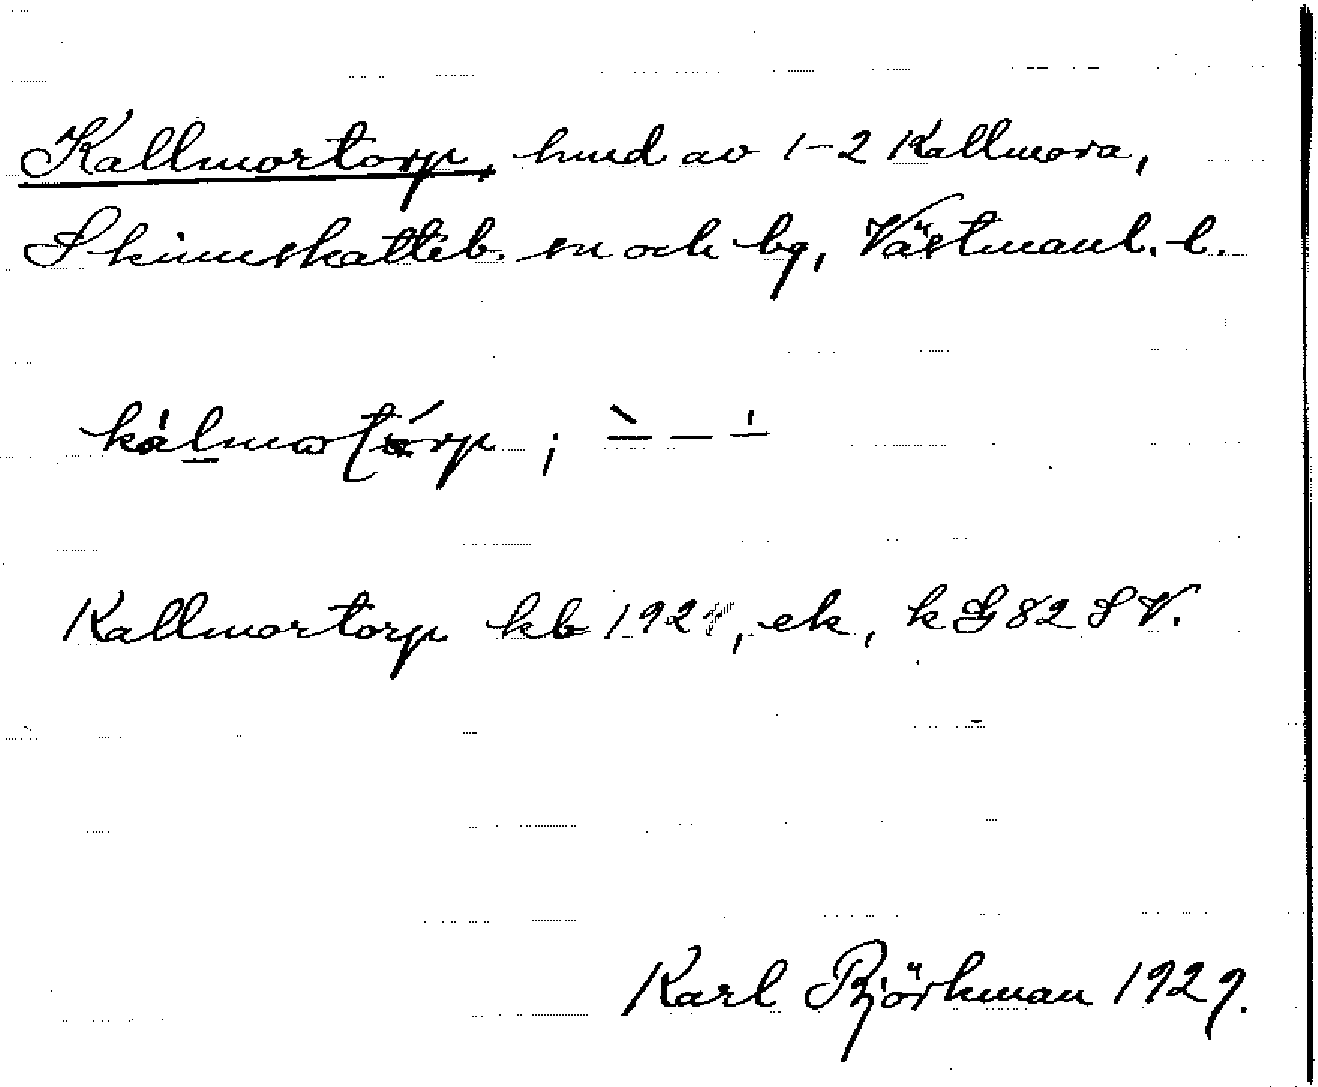 Kallmortorp, hmd av 1-2 Kallmora,
Skinnskatteb. sn och bg, Västmanl. l.
Kallmortorp kb 192, ek, kG82SV.
Karl Björkman 1929.